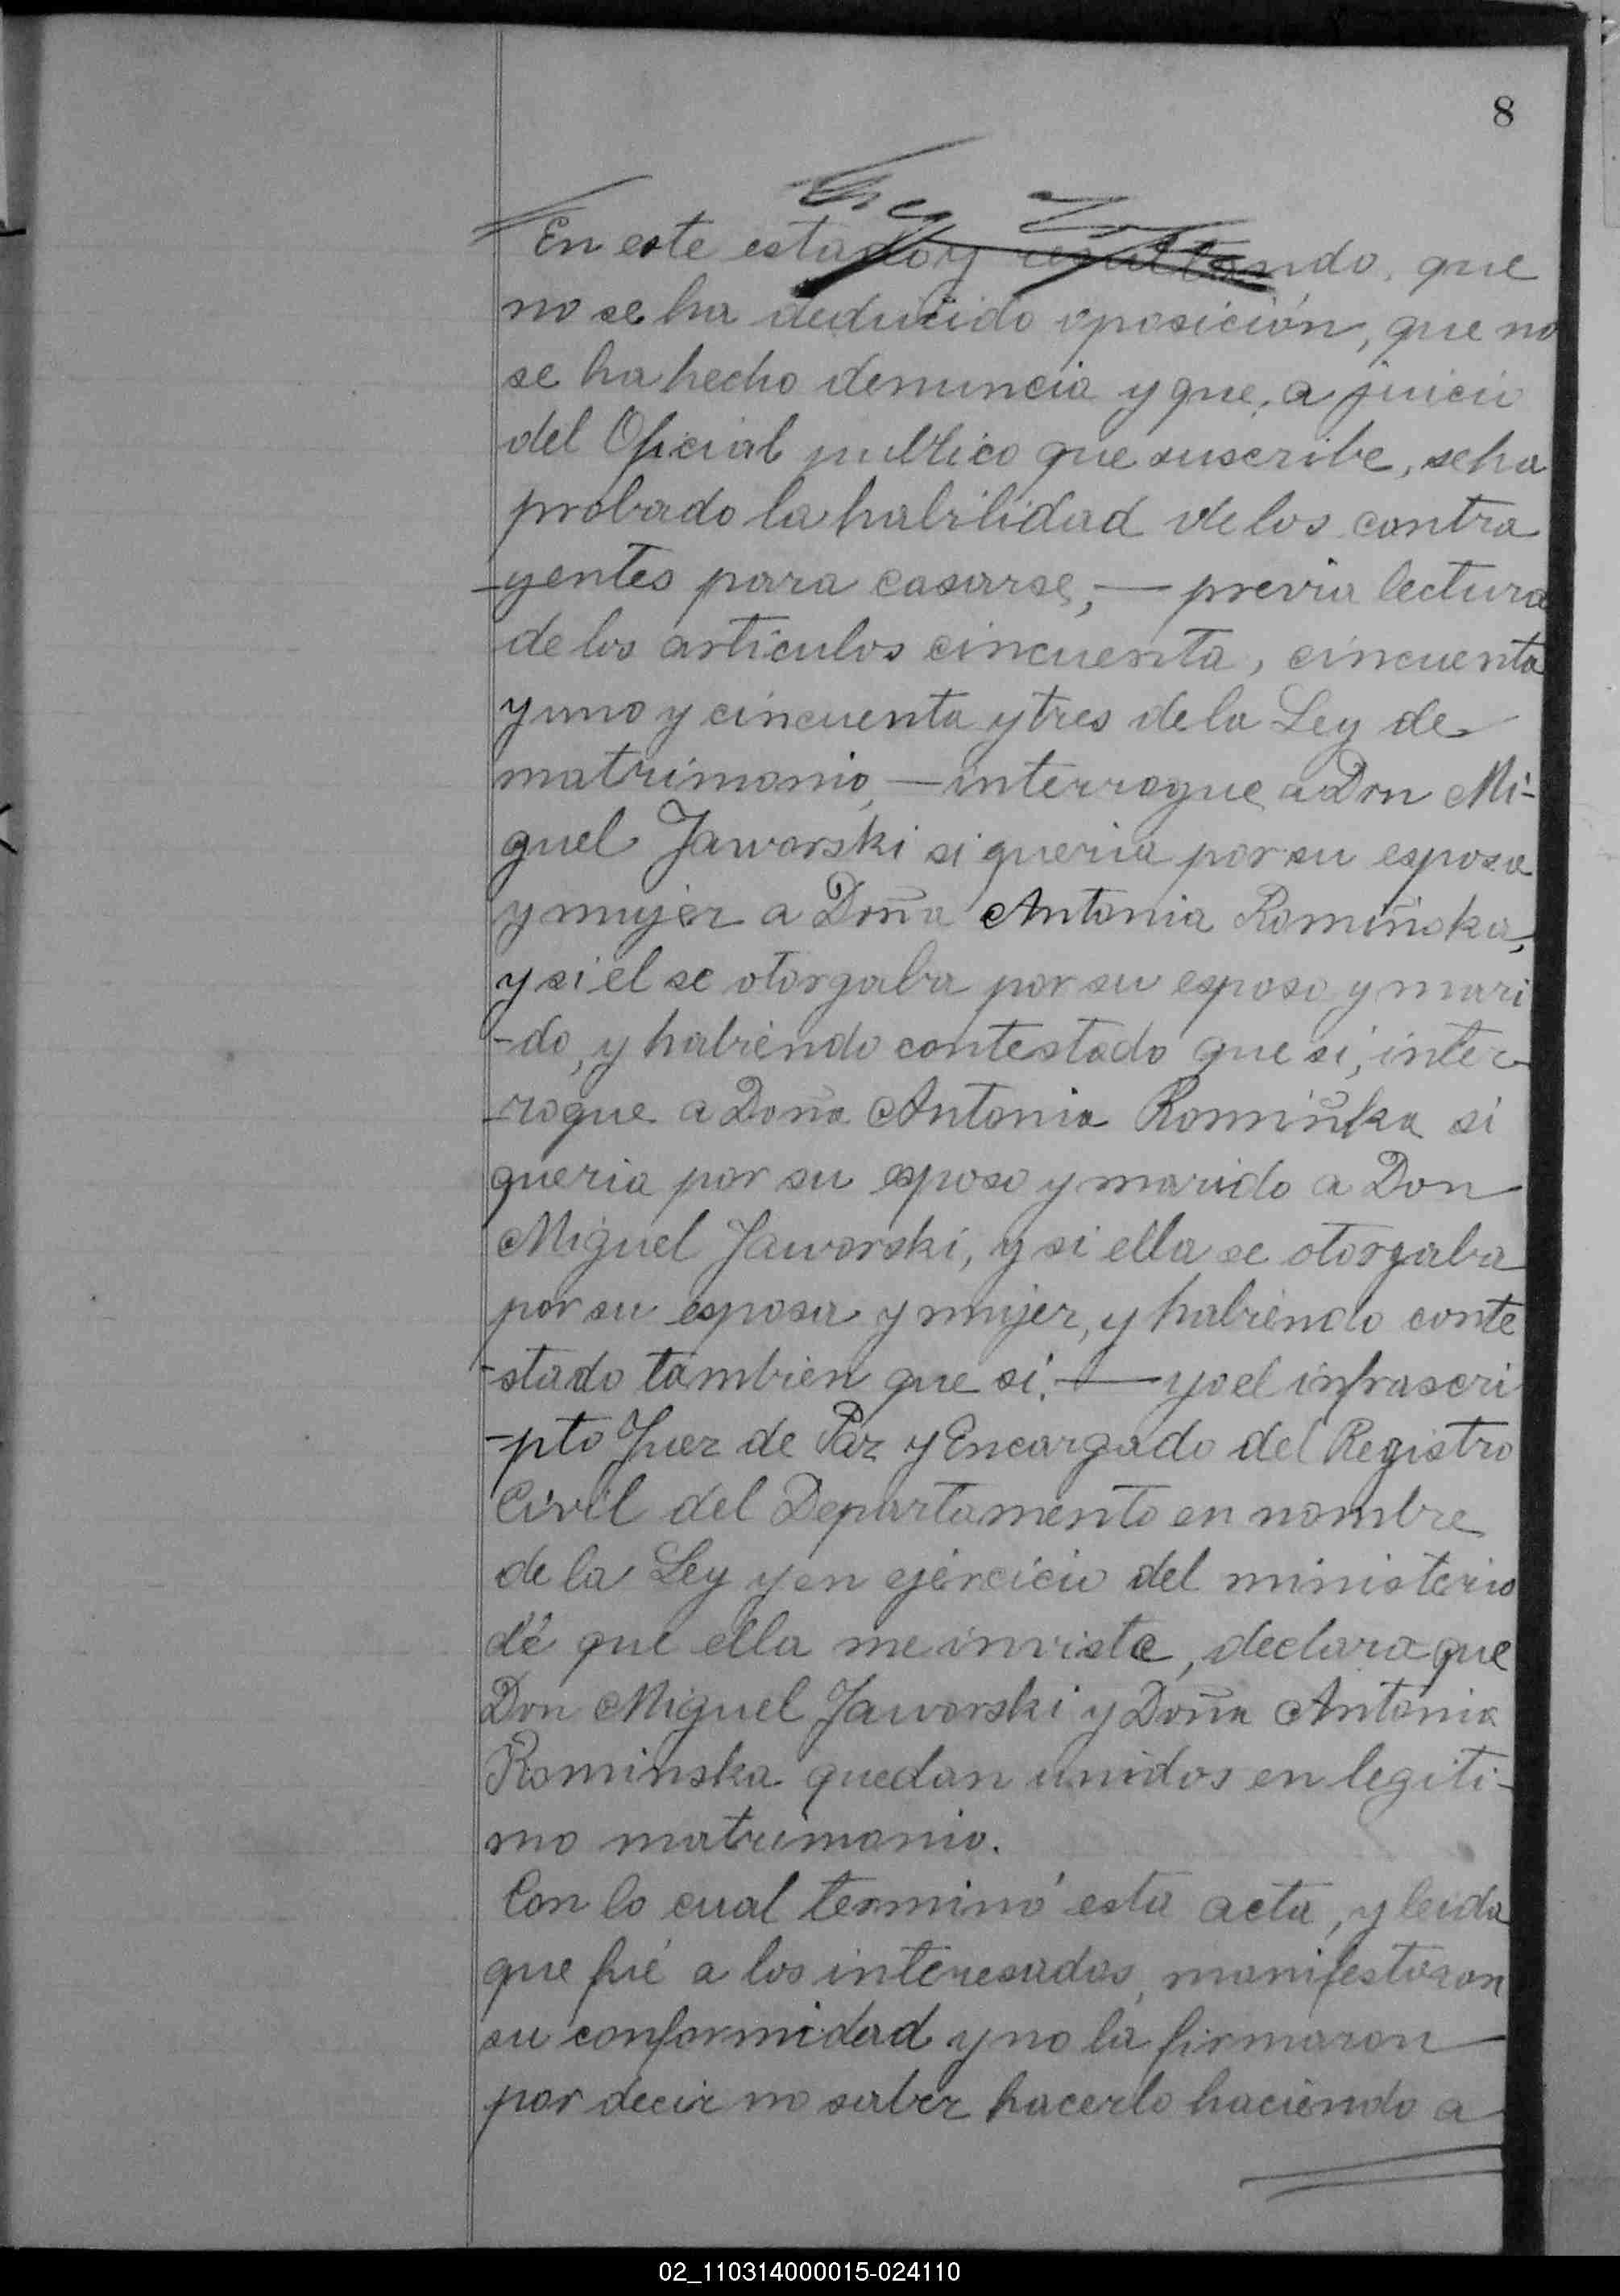 8
En este estado y resultando, que
no se ha deducido oposición, que no
se ha hecho denuncia y que, a juicio
del Oficial publico que suscribe, se ha
probado la habilidad de los contra
-yentes para casarse, — previa lectura
de los artículos cincuenta, cincuenta
y uno y cincuenta y tres de la Ley de
matrimonio, — interrogue a Don Mi-
guel Jaworski si queria por su esposa
y mujer a Doña Antonia Romińska,
y si el se otorgaba por su esposo y mari
-do, y habiendo contestado que si, inter
-rogue a Doña Antonia Romińka si
queria por su esposo y marido a Don
Miguel Jaworski, y si ella se otorgaba
por su esposa y mujer, y habiendo conte
-stado tambien que si. — yo el infrascri
-pto Juez de Paz y Encargado del Registro
Civil del Departamento en nombre
de la Ley y en ejercicio del ministerio
de que ella me inviste, declara que
Don Miguel Jaworski y Doña Antonia
Rominska quedan unidos en legiti-
mo matrimonio.
Con lo cual terminó esta acta, y leida
que fué a los interesados, manifestaron
su conformidad y no la firmaron
por decir no saber hacerlo haciendo a
02_110314000015-024110